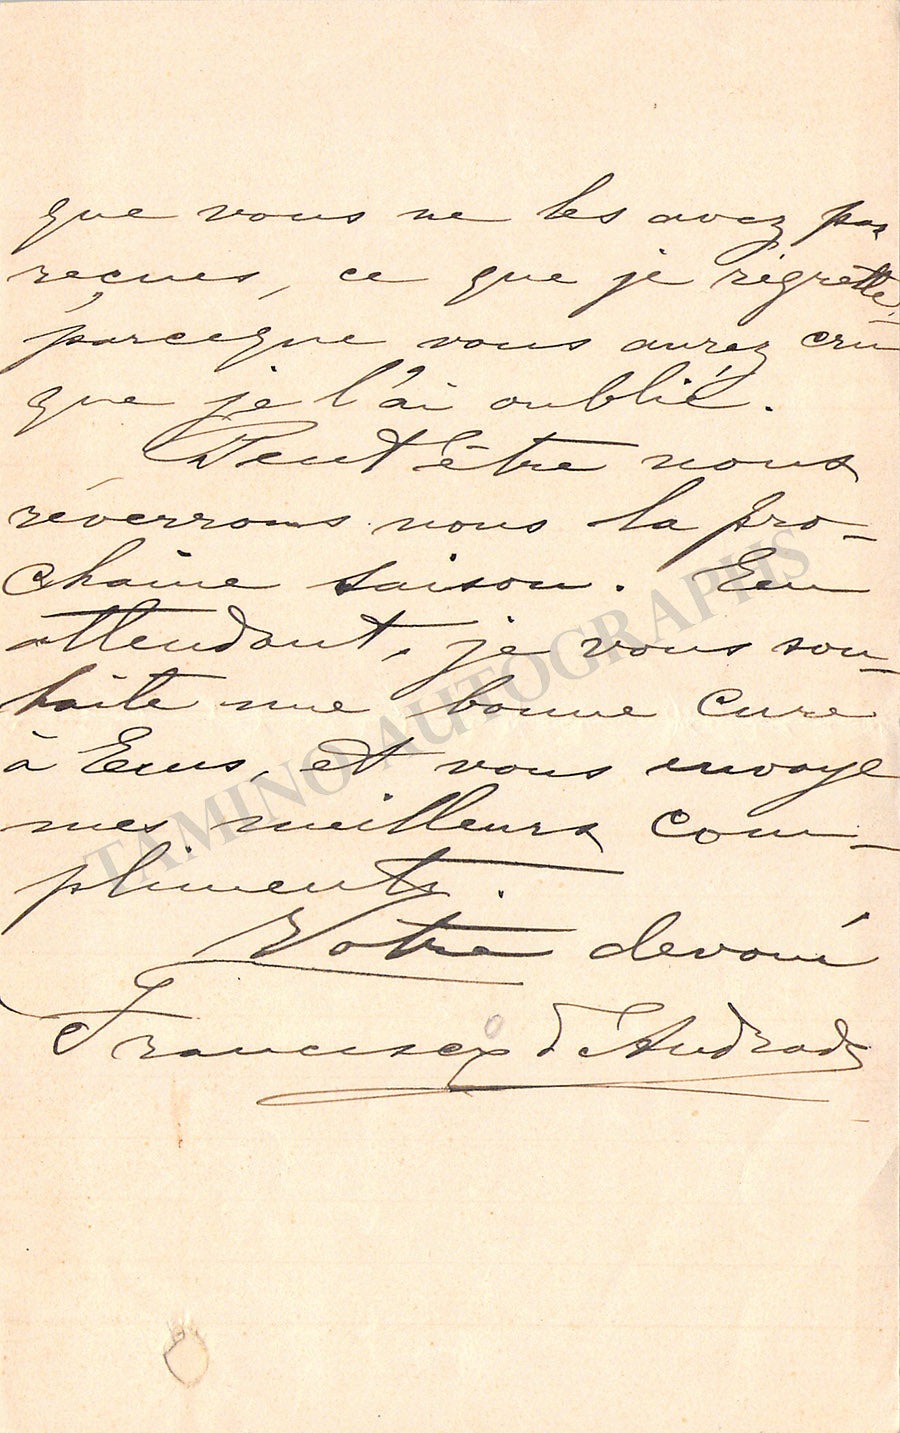 que vous ne les avez pas
reçues, ce que je régrette,
parceque vous aurez crû
que je l'ai oublié.
Peut être nous
réverrons nous la pro-
chaine saison. En
attendant, je vous sou-
haite une bonne cure
à Ems, et vous envoye
mes meilleurs com-
pliments.
Votre devoué
Francisco d'Andrade
TAMINO AUTOGRAPHS